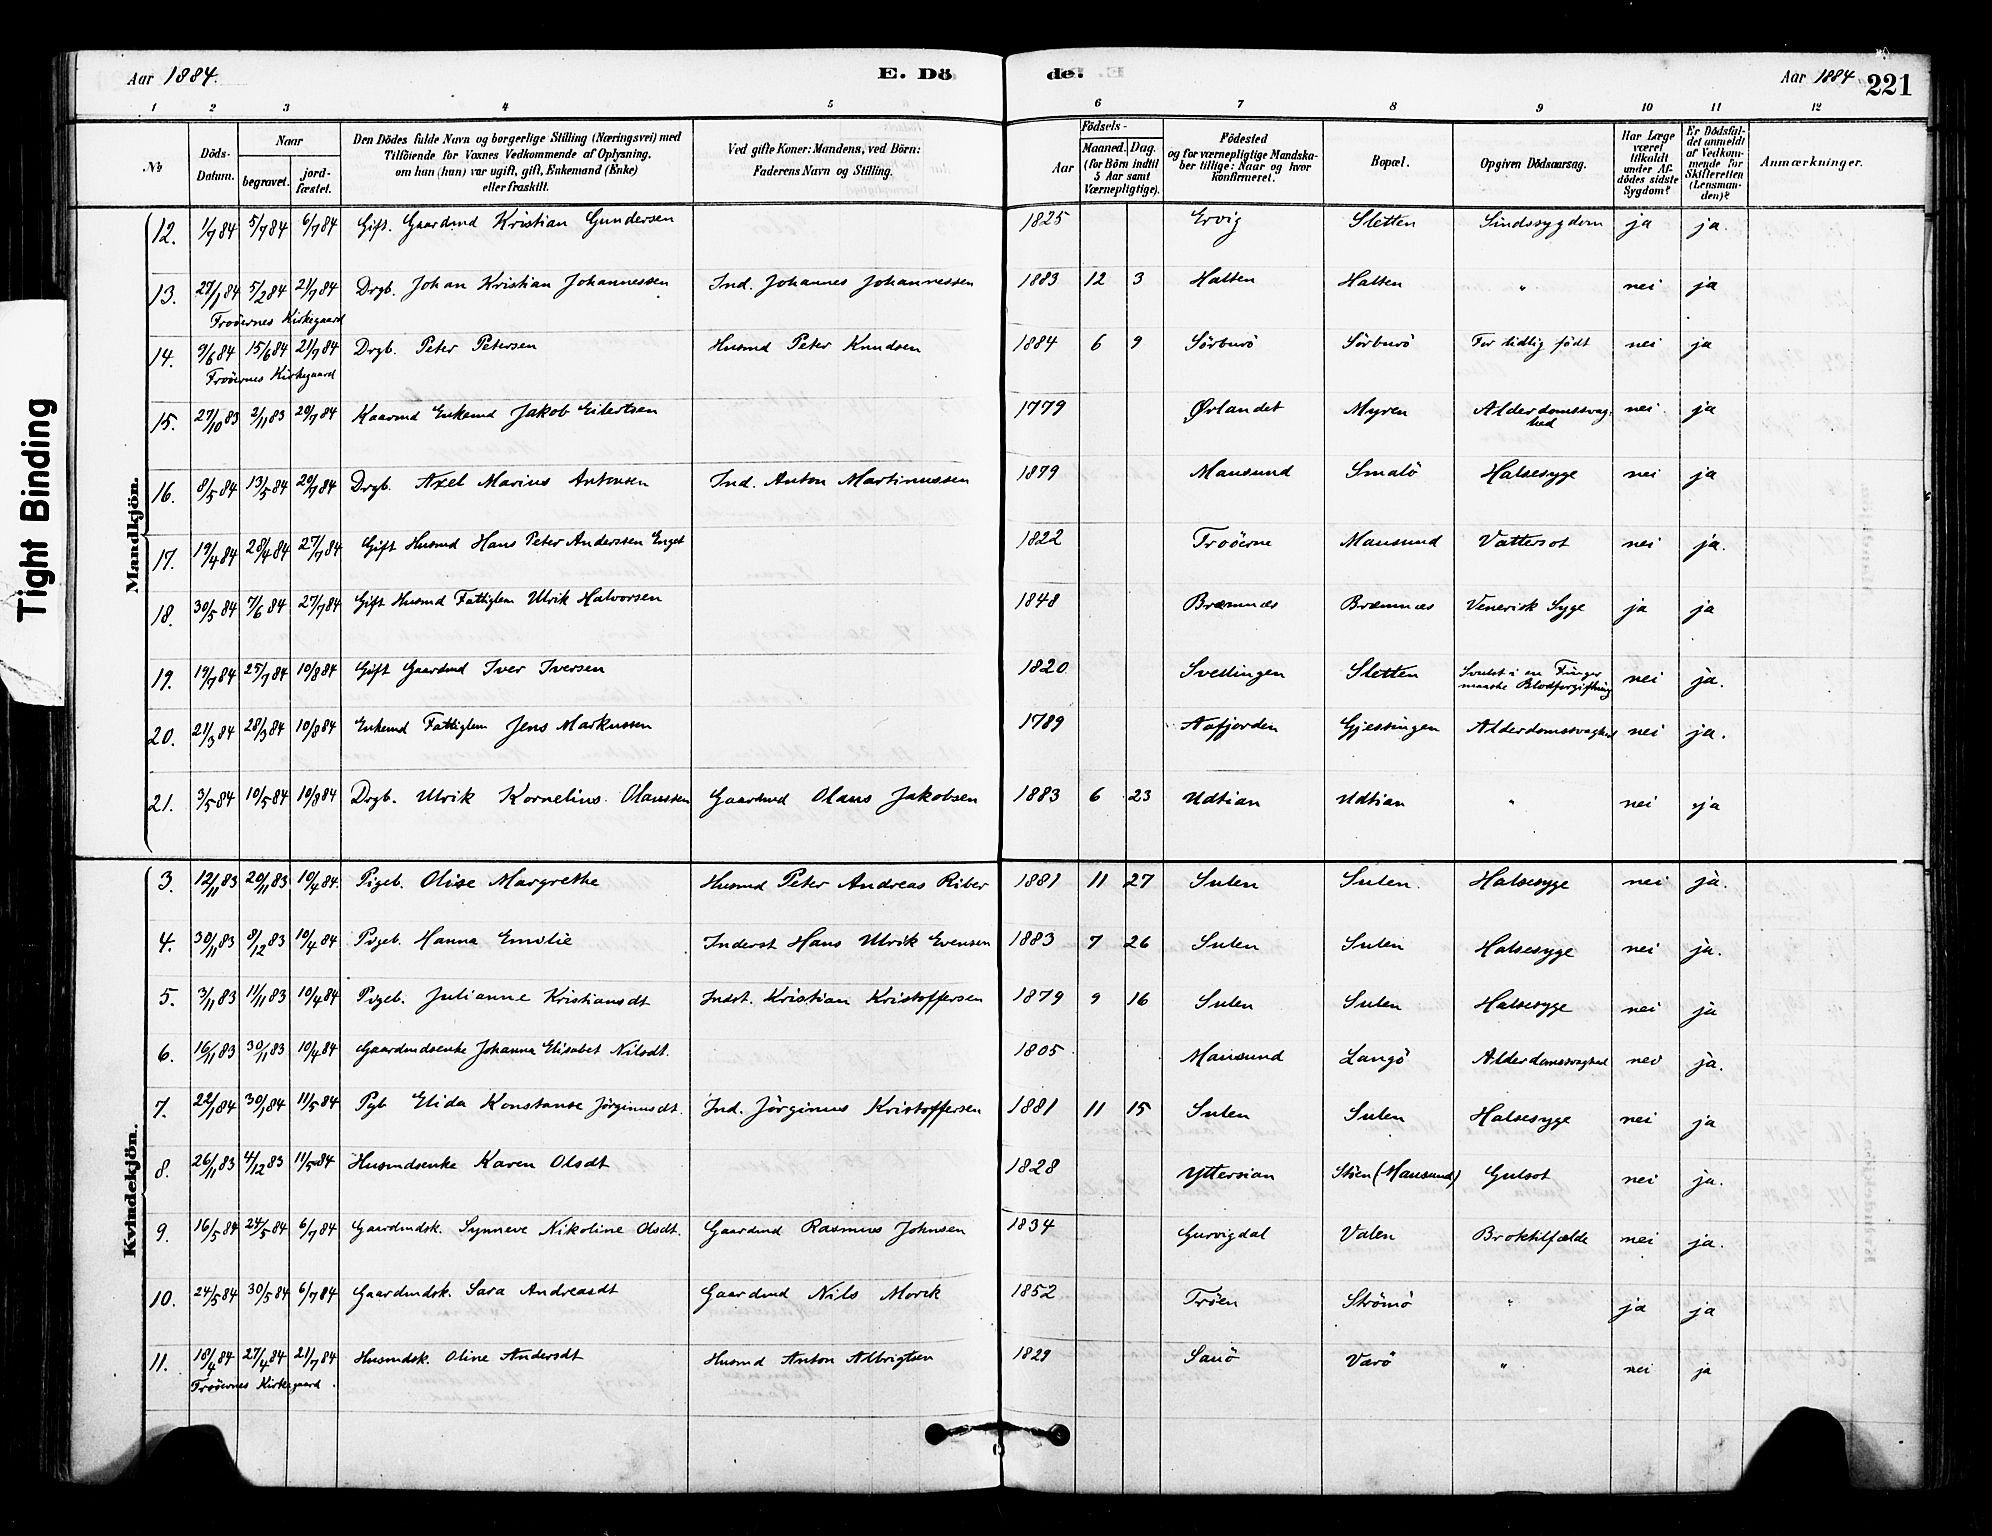 Aar 1884.
E. Dö
de.
Aar 1884
221
1 2 3 4 5 6 7 8 9 10 11 12
№
Döds-Datum.
Naar
begravet.
jord-fæstet.
Den Dödes fulde Navn og borgerlige Stilling (Næringsvei) med
Tilföiende for Voxnes Vedkommende af Oplysning,
om han (hun) var ugift, gift, Enkemand (Enke)
eller fraskilt.
Ved gifte Koner: Mandens, ved Börn:
Faderens Navn og Stilling.
Födsels-
Aar
Maaned. Dag.
(for Börn indtil
5 Aar samt
Værnepligtige).
Födested
og for værnepligtige Mandska-
ber tillige: Naar og hvor
konfirmeret.
Bopæl.
Opgiven Dödsaarsag.
Har Læge
været
tilkaldt
under Af-
dödes sidste
Sygdom?
Er Dödsfal-
det anmeldt
af Vedkom-
mende for
Skifteretten
(Lensman-
den)?
Anmærkninger.
Tight Binding
Mandkjön.
12. 1/7 84 5/7 84 6/7 84 Gift. Gaardmd Kristian Gundersen 1825 Ervig Sletten Sindssygdom ja ja.
13. 5/2 84 21/7 84 Drgb. Johan Kristian Johannessen Ind. Johannes Johannessen 1883 12 3 Halten Halten " nei ja
Froöernes Kirkegaard
14. 9/6 84 15/6 84 21/7 84 Drgb. Peter Petersen Husmd Peter Knudsen 1884 6 9 Sörburö Sörburö For tidlig födt nei ja
Froöernes Kirkegaard
15. 27/10 83 2/11 83 20/7 84 Kaarmd Enkemd Jakob Eilertsen 1779 Ørlandet Myren Alderdomssvag-
hed nei ja
16. 8/5 84 13/5 84 20/7 84 Drgb. Axel Marius Antonsen Ind. Anton Martinussen 1879 Mausund Smalö Halsesyge nei ja
17. 19/4 84 28/4 84 27/7 84 Gift Husmd Hans Peter Anderssen Enget 1822 Froöerne Mausund Vattersot nei ja.
18. 30/5 84 7/6 84 27/7 84 Gift Husmd Fattiglem Ulrik Halvorsen 1848 Bræmnæs Bræmnæs Venerisk Syge ja ja
19. 19/7 84 25/7 84 10/8 84 Gift Gaardmd Iver Iversen 1820 Svellingen Sletten Svulst i en Finger
maaske Blodforgiftning nei ja.
20. 21/3 84 28/3 84 10/8 84 Enkemd Fattiglem Jens Markussen 1789 Aafjorden Gjessingen Alderdomssvaghed nei ja.
21. 3/5 84 10/5 84 10/8 84 Drgb. Ulrik Kornelius Olaussen Gaardmd Olaus Jakobsen 1883 6 23 Udtian Udtian " nei ja
Kvindekjön.
3. 12/11 83 20/11 83 10/4 84. Pigeb. Olise Margrethe Husmd Peter Andreas Riber 1881 11 27 Sulen Sulen. Halsesyge nei ja.
4. 30/11 83 8/12 83 10/4 84 Pigeb. Hanna Emilie Inderst Hans Ulrik Evensen 1883 7 26 Sulen Sulen Halsesyge nei ja.
5. 3/11 83 11/11 83 10/4 84 Pigeb. Julianne Kristiansdt Indst. Kristian Kristoffersen 1879 9 16 Sulen Sulen Halsesyge nei ja
6. 16/11 83 30/11 83 10/4 84 Gaardmdsenke Johanna Elisabet Nilsdt. 1805 Mausund Langö Alderdomssvaghed nei ja.
7. 22/1 84 30/1 84 11/5 84 Pgb Elida Konstanse Jörginusdt. Ind. Jörginus Kristoffersen 1881 11 15 Sulen Sulen Halsesyge nei ja
8. 26/11 83 4/12 83 11/5 84 Husmdsenke Karen Olsdt 1828 Yttersian Stöen (Mausund) Gulsot nei ja.
9. 16/5 84 24/5 84 6/7 84 Gaardmdsk. Synneve Nikoline Olsdt. Gaardmd Rasmus Johnsen 1834 Gurvigdal Valen Broktilfælde nei ja.
10. 24/5 84 30/5 84 6/7 84 Gaardmdsk. Sara Andreasdt Gaardmd Nils Morik 1852 Tröen Strömö " ja ja
11. 18/4 84 27/4 84 21/7 84 Husmdsk. Oline Andersdt Husmd Anton Albrigtsen 1829 Sauö Varö " nei ja
Froöernes Kirkegaard.